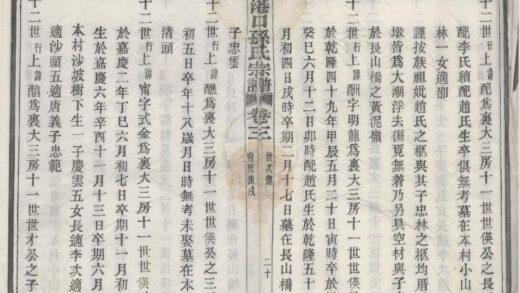 十二世行上諱配爲裏大三房十一世世僙公之長
配李氏續配趙氏生卒俱無考墓在本村小山
林一女適鄒
謹按族祖妣趙氏之柩與其子忠林之柩均厝
墩皆爲大潮浮去徧覓無着乃另具空材與子
於長山橋之黃泥
十二世行上諱酬字明龍爲裏大三房十一世世僙公之
於乾隆四十九年甲辰五月二十日寅時卒於
癸巳六月十二日卯時配趙氏生於乾隆五十
月初四日戌時卒期二月十七日墓在長山橋
港口孫氏宗譜 卷三 世次傳 二十
子忠雲
十二世行上諱醮爲裏大三房十一世世僙公之三
初五日卒年十八歲月日時無考未娶墓在本
渚頭
十二世行上諱甯字式金爲裏大三房十一世世僙公
於嘉慶二年丁巳六月初七日卒期十一月初
生於嘉慶六年辛酉十一月十三日卒期六月
村沙坡樹下生一子慶雲五女長適李次適
適沙頭五適唐義子忠範
十二世行上諱爲裏大三房十一世世才公之子